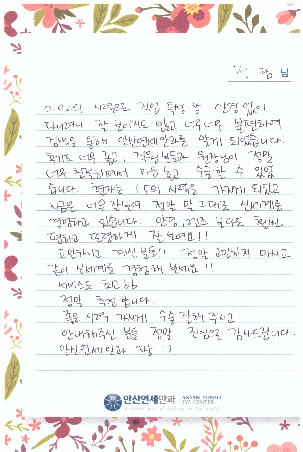 정 람 님
0.02의 시력으로 직업 특성 상 안경 없이
다니려니 잘 보이지도 않고 너무너무 불편하여
검색을 통해 안산연세안과를 알게 되었습니다.
후기도 너무 좋고, 직원분들과 원장님이 정말
너무 친절하셔서 마음 놓고 수술 할 수 있었
습니다. 현재는 1.5의 시력을 가지게 되었고
지금은 너무 잘보여 정말 말 그대로 신세계를
경험하고 있습니다. 안경, 렌즈 보다도 훨씬
편하고 또렷하게 잘 보여요!!
고민하시고 계신분들!! 정말 고민하지 마시고
같이 신세계를 경험해 보세요!!
서비스도 최고
정말 추천합니다
좋은 시력 가지게 수술 집도해 주시고
안내해주신 분들 정말 진심으로 감사드립니다.
안산연세안과 짱 :)
안산연세안과 ANSAN YONSEI
EYE CENTER